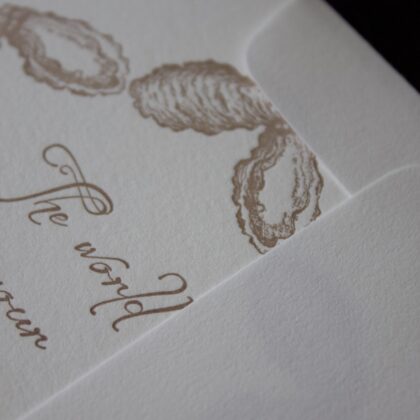 The world
your